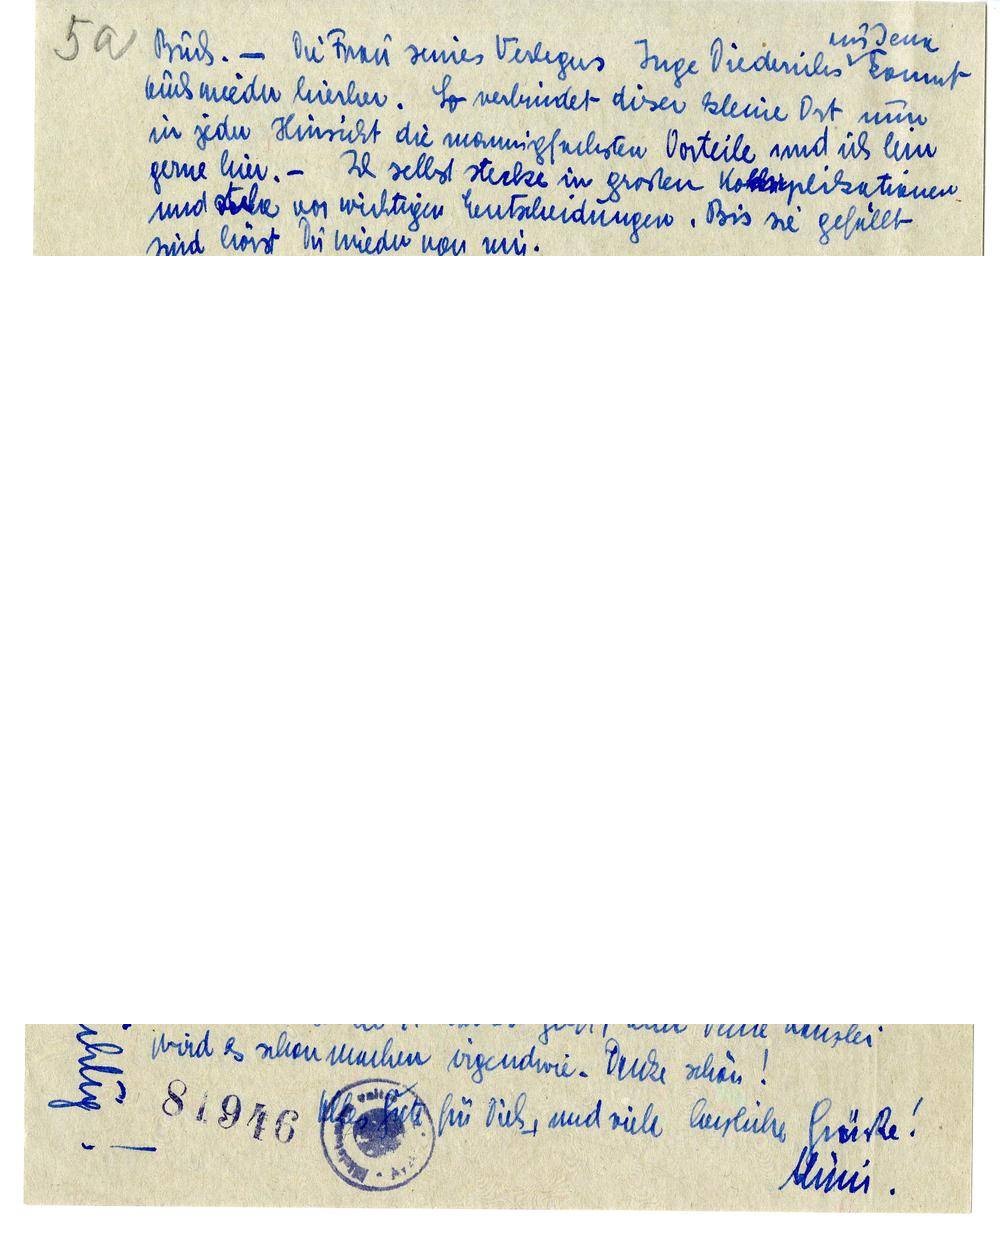 5a
Buch. — Die Frau seines Verlegers Inge Diederichs aus Jena kommt
auch wieder hierher. So verbindet dieser kleine Ort nun
in jeder Hinsicht die mannigfachsten Vorteile und ich bin
gerne hier. — Ich selbst stecke in großen Komplikationen
und stehe vor wichtigen Entscheidungen. Bis sie gefällt
sind hörst Du wieder von mir.
deine Kanzlei
wird es schon machen irgendwie. Danke schön!
81946
Alles Gute für Dich, und viele herzliche Grüße!
Mimi.